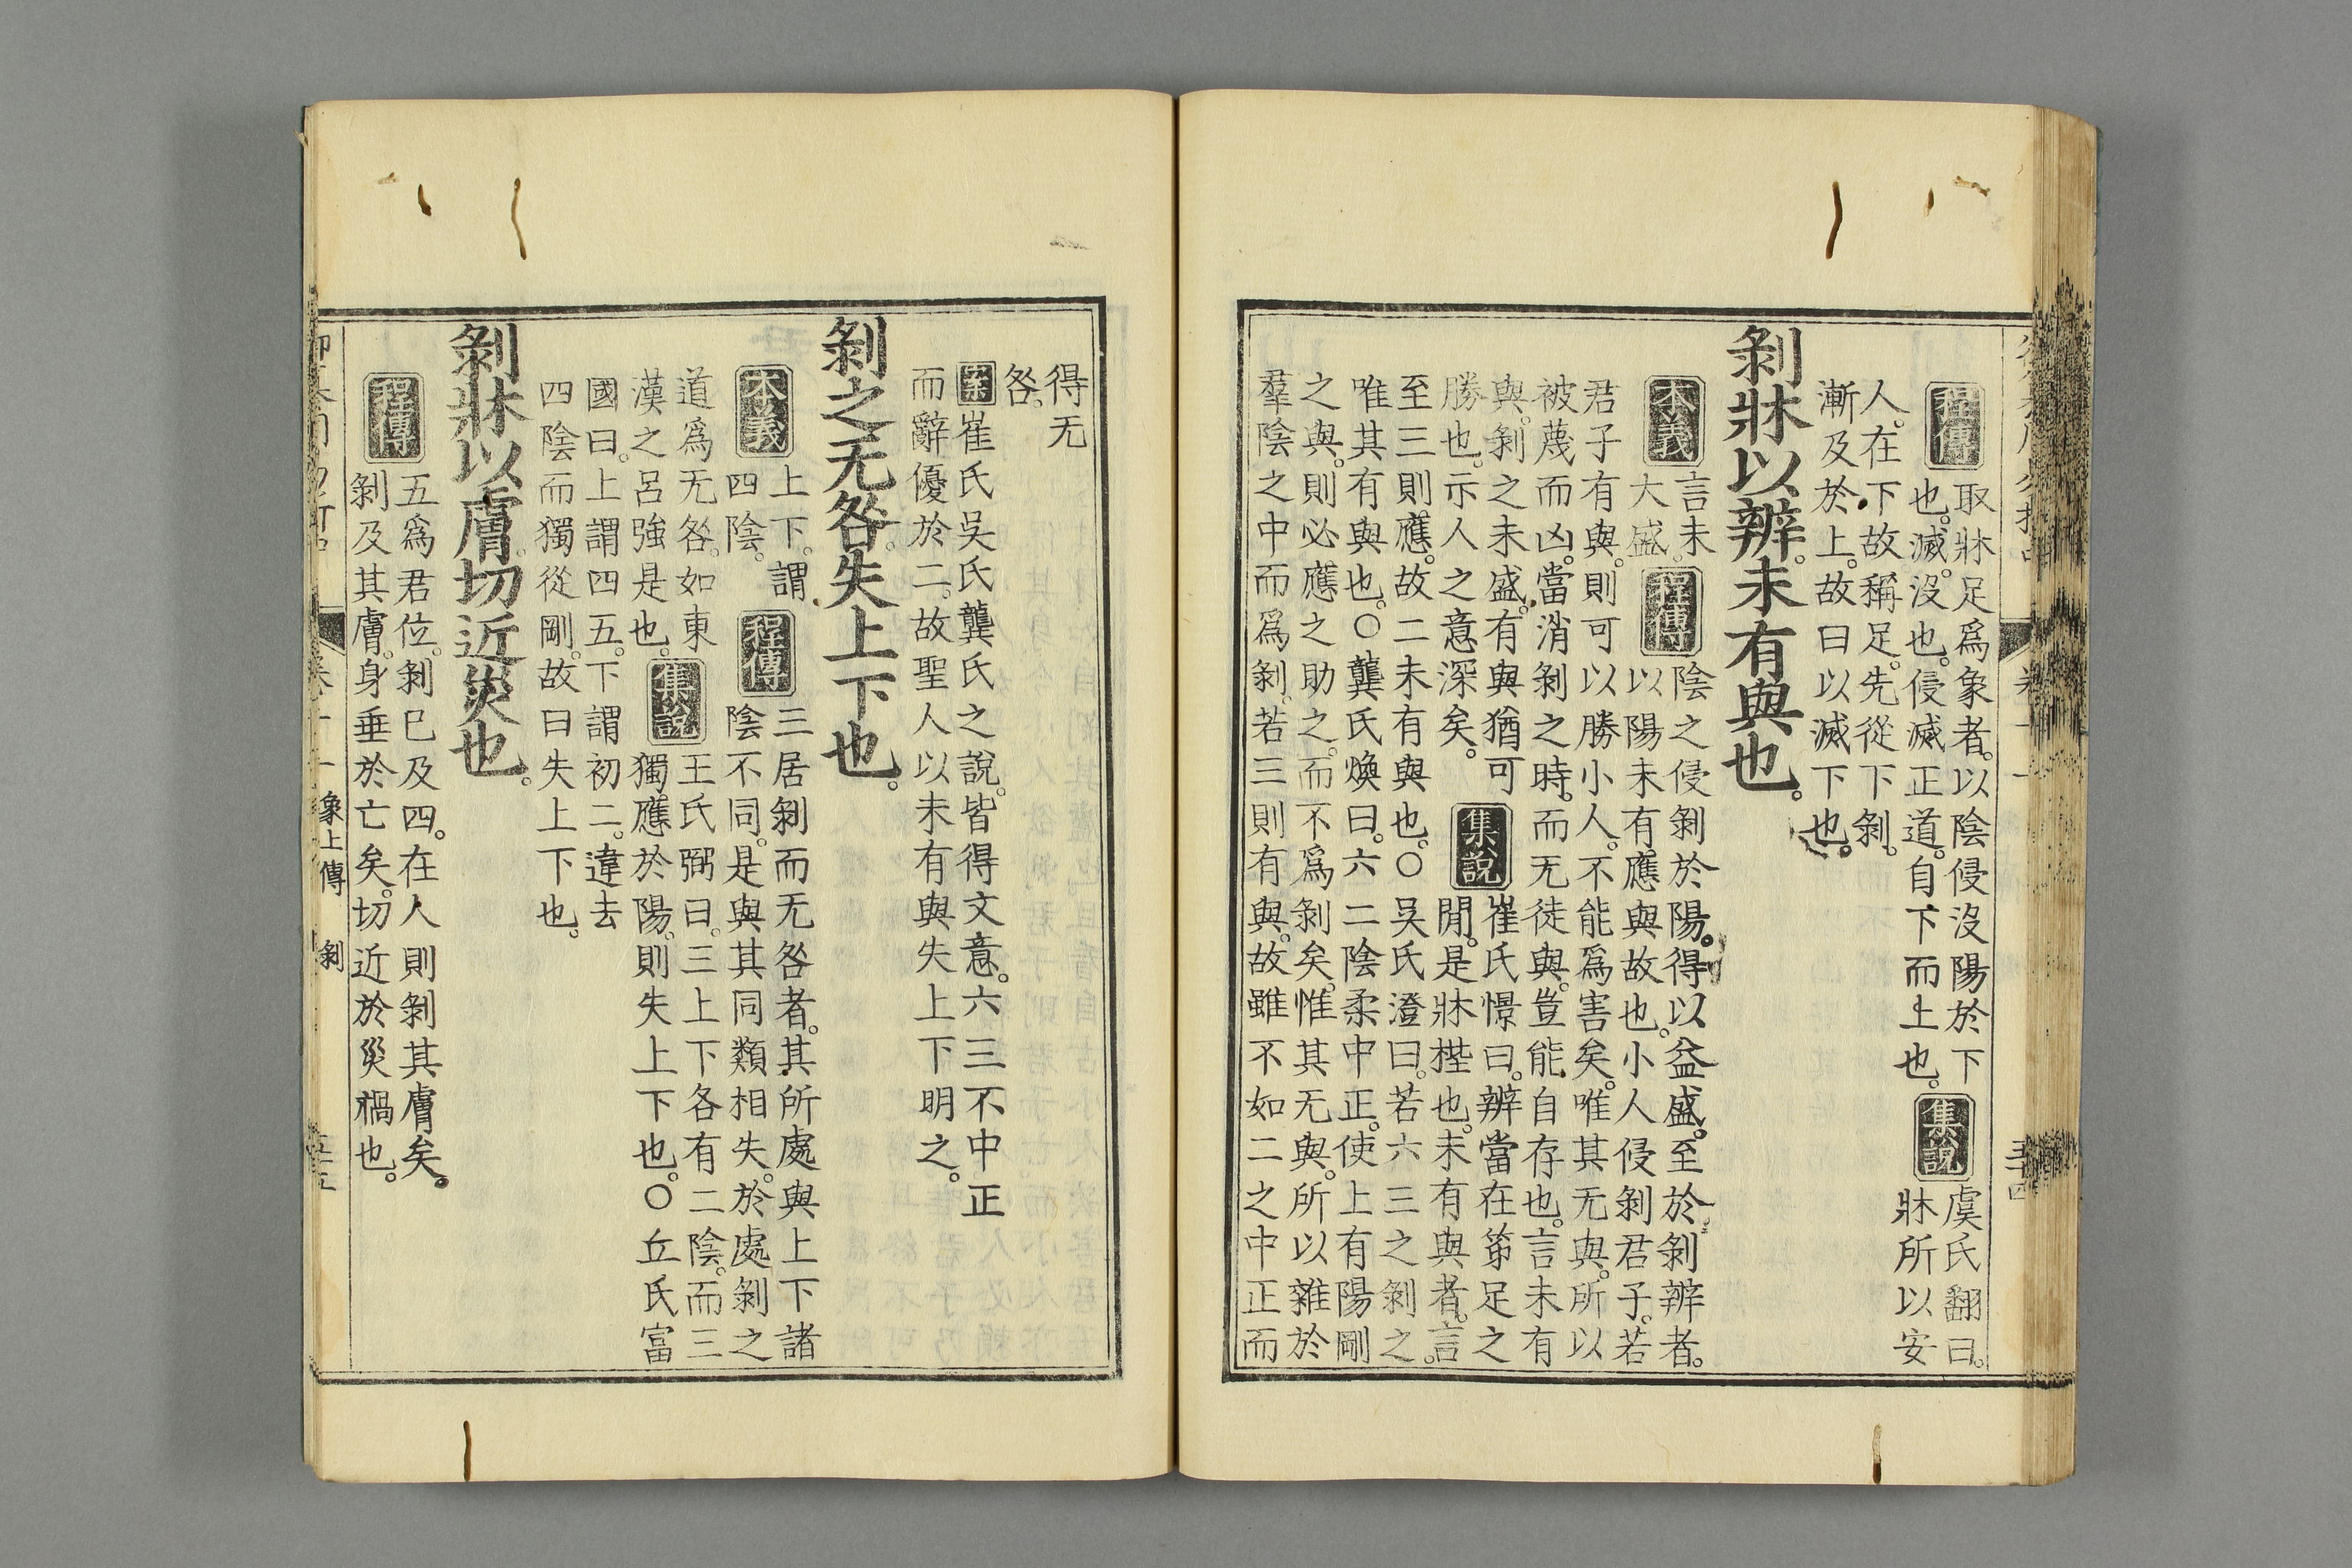 程傳
取牀足爲象者。以陰侵沒陽於下
也。滅。沒也。侵滅正道。自下而上也。
集說
虞氏翻曰。
牀所以安
人。在下故稱足。先從下剝。
漸及於上。故曰以滅下也。
剝牀以辨。未有與也。
本義
言未
大盛。
程傳
陰之侵剝於陽。得以益盛。至於剝辨者。
以陽未有應與故也。小人侵剝君子。若
君子有與。則可以勝小人。不能爲害矣。唯其无與。所以
被蔑而凶。當消剝之時。而无徒與。豈能自存也。言未有
與。剝之未盛。有與猶可
勝也。示人之意深矣。
集說
崔氏憬曰。辨當在第足之
閒。是牀梐也。未有與者。言
至三則應。故二未有與也。○吳氏澄曰。若六三之剝之。
唯其有與也。○龔氏煥曰。六二陰柔中正。使上有陽剛
之與。則必應之助之。而不爲剝矣。惟其无與。所以雜於
羣陰之中而爲剝。若三則有與。故雖不如二之中正而
得无
咎。
案
崔氏吳氏龔氏之說。皆得文意。六三不中正
而辭優於二。故聖人以未有與失上下明之。
剝之无咎。失上下也。
本義
上下。謂
四陰。
程傳
三居剝而无咎者。其所處與上下諸
陰不同。是與其同類相失。於處剝之
道爲无咎。如東
漢之呂強是也。
集說
王氏弼曰。三上下各有二陰。而三
獨應於陽。則失上下也。○丘氏富
國曰。上謂四五。下謂初二。違去
四陰而獨從剛。故曰失上下也。
剝牀以膚。切近災也。
程傳
五爲君位。剝已及四。在人則剝其膚矣。
剝及其膚。身垂於亡矣。切近於災禍也。
象上傳 剝